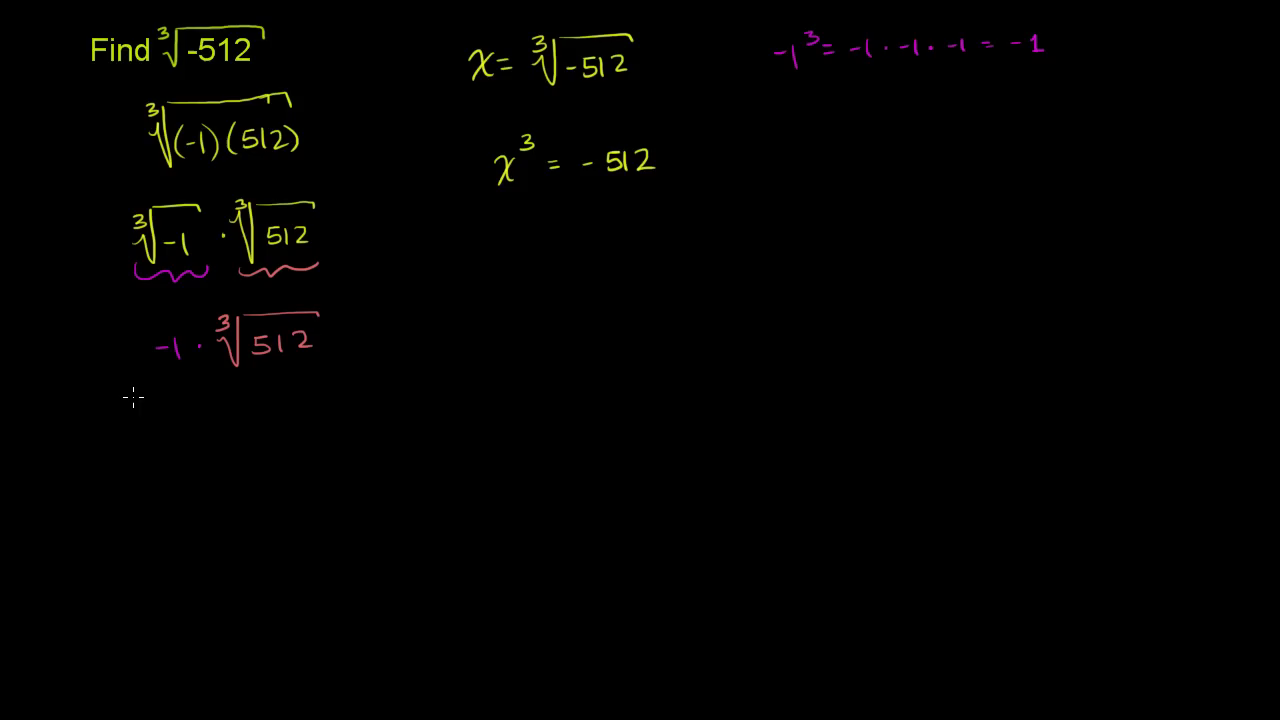 Find ∛-512
∛(-1)(512)
∛-1 · ∛512
-1 · ∛512
x = ∛-512
x³ = -512
-1³ = -1 · -1 · -1 = -1